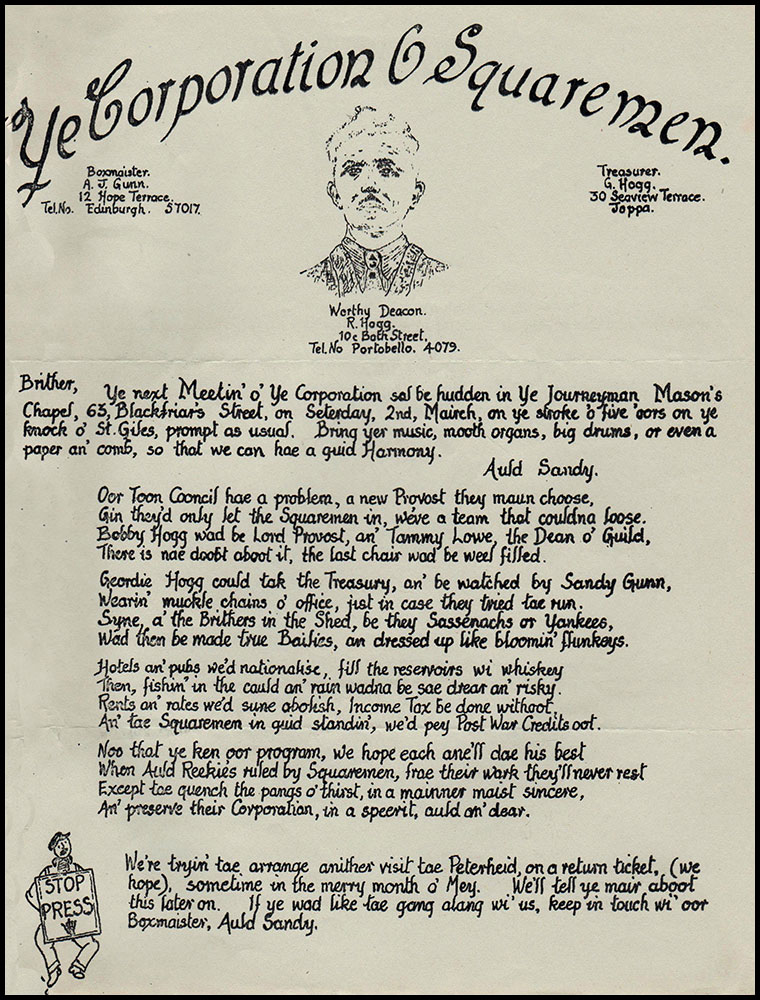 Ye Corporation O Squaremen.
Boxmaister.
A. J. Gunn.
12 Hope Terrace.
Tel.No. Edinburgh. 57017.
Treasurer.
G. Hogg.
30 Seaview Terrace.
Joppa.
Worthy Deacon.
R. Hogg.
10c Bath Street,
Tel. No Portobello. 4079.
Brither,
Ye next Meetin' o' Ye Corporation sal be hudden in Ye Journeyman Mason's
Chapel, 63, Blackfriars Street, on Seterday, 2nd, Mairch, on ye stroke o' five 'oors on ye
knock o' St. Giles, prompt as usual. Bring yer music, mooth organs, big drums, or even a
paper an' comb, so that we can hae a guid Harmony.
Auld Sandy.
Oor Toon Cooncil hae a problem, a new Provost they maun choose,
Gin they'd only let the Squaremen in, we've a team that couldna loose.
Bobby Hogg wad be Lord Provost, an' Tammy Lowe, the Dean o' Guild,
There is nae doobt aboot it, the last chair wad be weel filled.
Geordie Hogg could tak the Treasury, an' be watched by Sandy Gunn,
Wearin' muckle chains o' office, jist in case they tried tae run.
Syne, a' the Brithers in the Shed, be they Sassenachs or Yankees,
Wad then be made true Bailies, an dressed up like bloomin' flunkeys.
Hotels an' pubs we'd nationalise, fill the reservoirs wi whiskey
Then, fishin' in the cauld an' rain wadna be sae drear an' risky.
Rents an' rates we'd sune abolish, Income Tax be done withoot,
An' tae Squaremen in guid standin', we'd pey Post War Credits oot.
Noo that ye ken oor program, we hope each ane'll dae his best
When Auld Reekie's ruled by Squaremen, frae their wark they'll never rest
Except tae quench the pangs o' thirst, in a mainner maist sincere,
An' preserve their Corporation, in a speerit, auld an' dear.
STOP
PRESS
We're tryin' tae arrange anither visit tae Peterheid, on a return ticket, (we
hope), sometime in the merry month o' Mey. We'll tell ye mair aboot
this later on. If ye wad like tae gang alang wi' us, keep in touch wi' oor
Boxmaister, Auld Sandy.